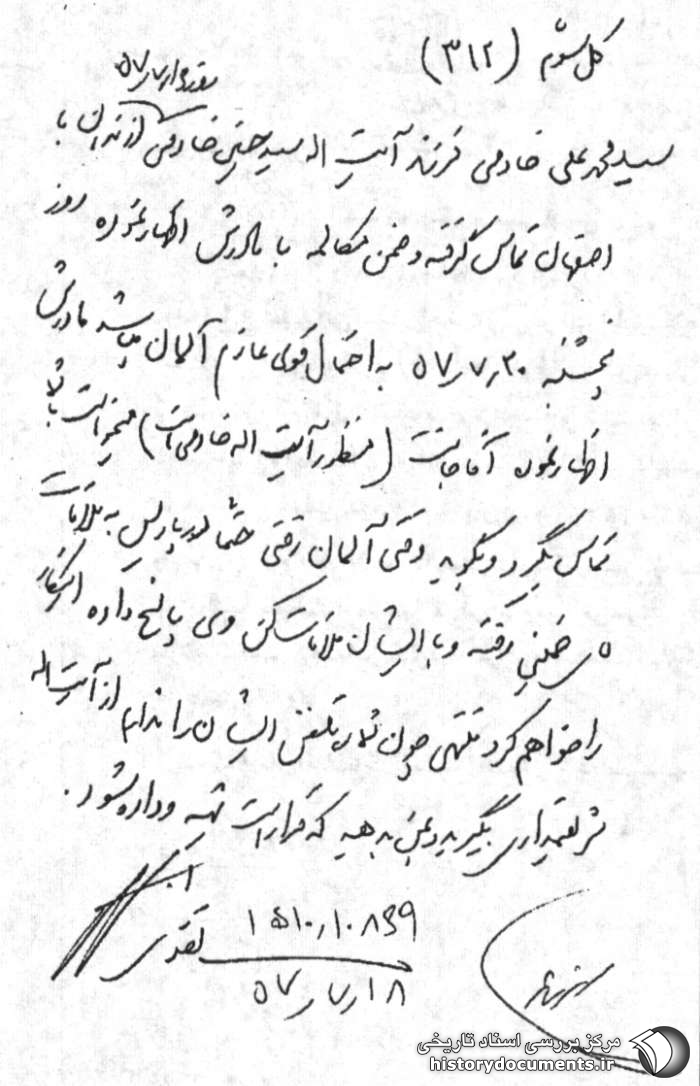 کل سوم (۳۱۲)
سیدمحمدعلی خادمی فرزند آیت اله سیدحسین خادمی از تهران با
اصفهان تماس گرفته و ضمن مکالمه با مادرش اظهار نموده روز
پنجشنبه ۵۷٫۷٫۲۰ به احتمال قوی عازم آلمان میباشد مادرش
اظهار نموده آقاجانت (منظور آیت اله خادمی است) میخواست با تو
تماس بگیرد و بگوید وقتی آلمان رفتی حتما در پاریس به ملاقات
خمینی رفته و با ایشان ملاقات کن وی پاسخ داده این کار
را خواهم کرد منتهی چون شماره تلفن ایشان را ندارم از آیت اله
بگیرید و بمن بدهید که قرار است تهیه و داده شود.
۱۵۱۰٫۱۰۸۳۹
۵۷٫۷٫۱۸
تقدی
مرکز بررسی اسناد تاریخی
historydocuments.ir